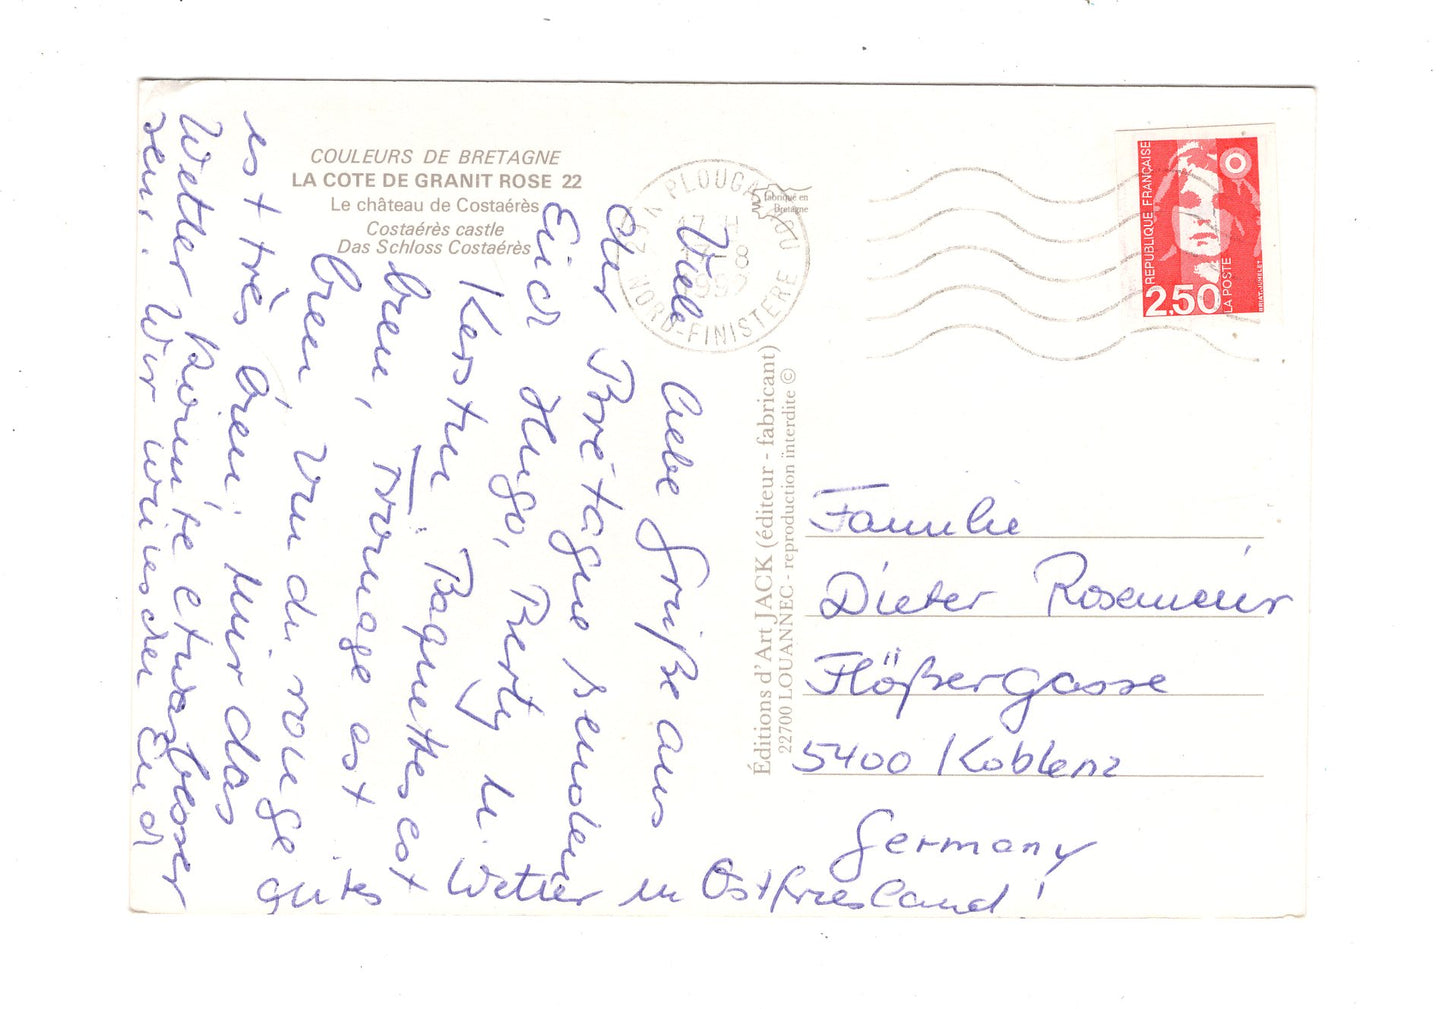 COULEURS DE BRETAGNE
LA COTE DE GRANIT ROSE 22
Le château de Costaérès
Costaérès castle
Das Schloss Costaérès
fabriqué en
Bretagne
29 A PLOUGASNOU
17 H
8
NORD-FINISTERE
REPUBLIQUE FRANÇAISE
2,50
LA POSTE
Éditions d'Art JACK (éditeur - fabricant)
22700 LOUANNEC - reproduction interdite ©
Viele liebe Grüße aus
der Brétagne senden
Euch Hugo, Berty u.
Kerstin. Baguettes est
bien, Fromage est
bien, Vin du rouge
est très bien, nur das
Wetter könnte etwas besser
sein. Wir wünschen Euch
gutes Wetter in Ostfriesland!
Familie
Dieter
Flößergasse
5400 Koblenz
Germany